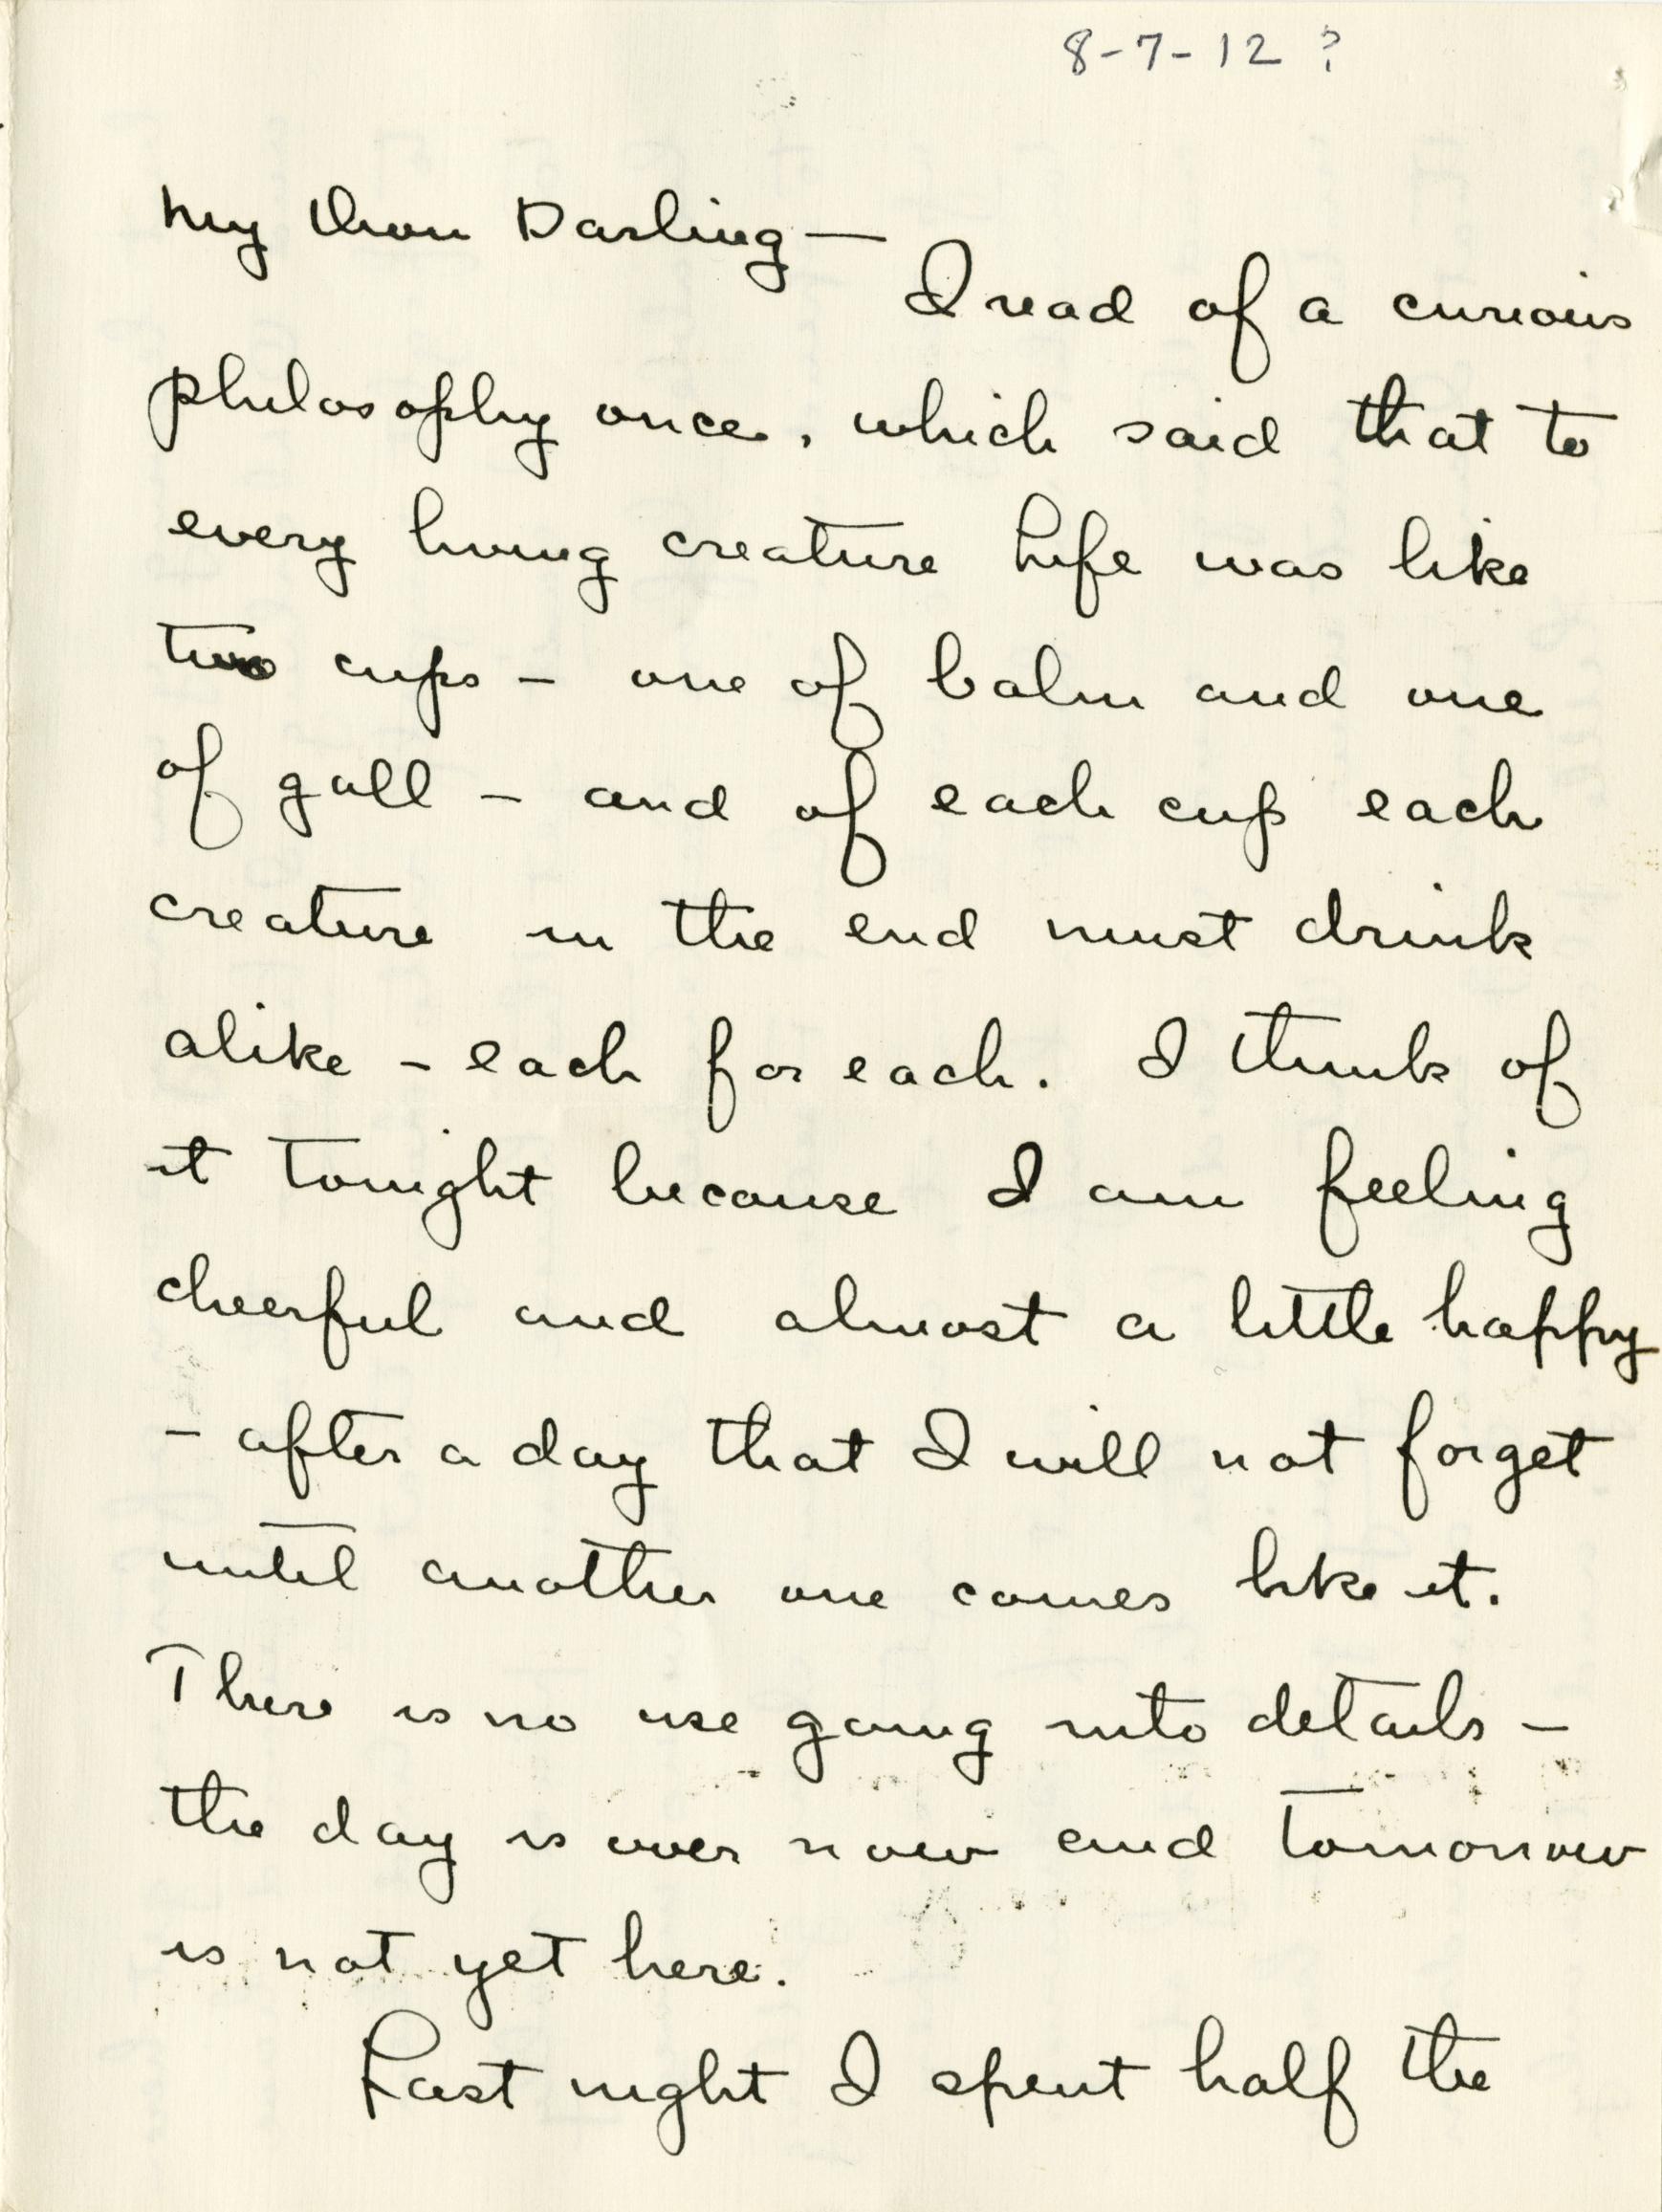 8-7-12 ?
My thou Darling —
I read of a curious
philosophy once, which said that to
every living creature Life was like
two cups – one of balm and one
of gall – and of each cup each
creature in the end must drink
alike – each for each. I think of
it tonight because I am feeling
cheerful and almost a little happy
– after a day that I will not forget
until another one comes like it.
There is no use going into details –
the day is over now and tomorrow
is not yet here.
Last night I spent half the